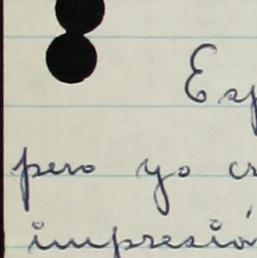 Esp
pero yo cr
impresión